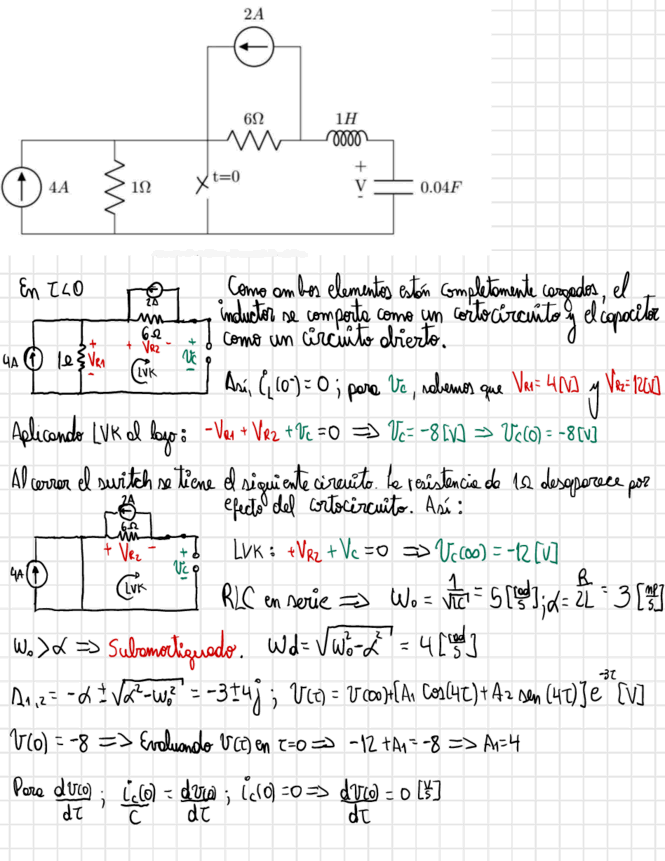 2A
6Ω
1H
4A
1Ω
t=0
+
V
-
0.04F
En t<0
2A
6Ω
+ VR2 -
4A
1Ω
+
VR1
-
LVK
+
Vc
-
Como ambos elementos están completamente cargados, el
inductor se comporta como un cortocircuito y el capacitor
como un circuito abierto.
Así, iL(0⁻)=0 ; para Vc, sabemos que VR1=4[V] y VR2=12[V]
Aplicando LVK al lazo: -VR1+VR2+Vc=0 ⇒ Vc=-8[V] ⇒ Vc(0)=-8[V]
Al cerrar el switch se tiene el siguiente circuito. La resistencia de 1Ω desaparece por
efecto del cortocircuito. Así:
2A
6Ω
+ VR2 -
4A
LVK
+
Vc
-
LVK: +VR2+Vc=0 ⇒ Vc(∞)=-12[V]
RLC en serie ⇒ ω₀ = 1/√LC = 5[rad/s]; α = R/2L = 3[np/s]
ω₀>α ⇒ Subamortiguado. ωd=√(ω₀²-α²) = 4[rad/s]
s1,2 = -α ± √(α²-ω₀²) = -3±4j ; V(t) = V(∞)+[A1 cos(4t)+A2 sen(4t)]e^-3t [V]
V(0)=-8 ⇒ Evaluando V(t) en t=0 ⇒ -12+A1=-8 ⇒ A1=4
Para dV(0)/dt ; ic(0)/C = dV(0)/dt ; ic(0)=0 ⇒ dV(0)/dt = 0 [V/s]